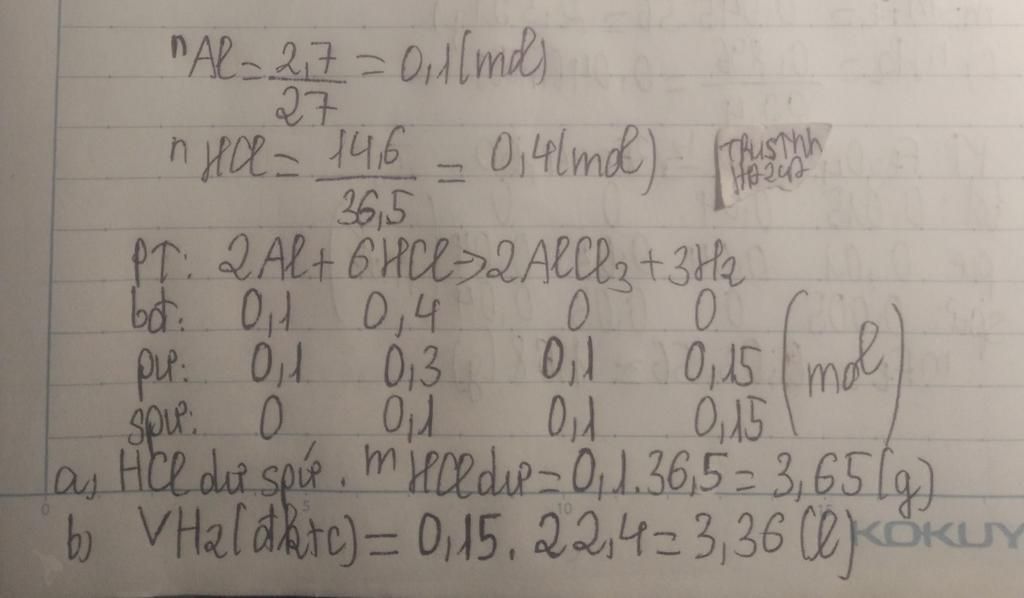 nAl = 2,7/27 = 0,1 (mol)
nHCl = 14,6/36,5 = 0,4 (mol)
PT: 2Al + 6HCl → 2AlCl3 + 3H2
bđ: 0,1 0,4 0 0
pư: 0,1 0,3 0,1 0,15 (mol)
spư: 0 0,1 0,1 0,15
a, HCl dư spứ. mHCl dư = 0,1.36,5 = 3,65 (g)
b) VH2 (đktc) = 0,15.22,4 = 3,36 (l)
KOKUY